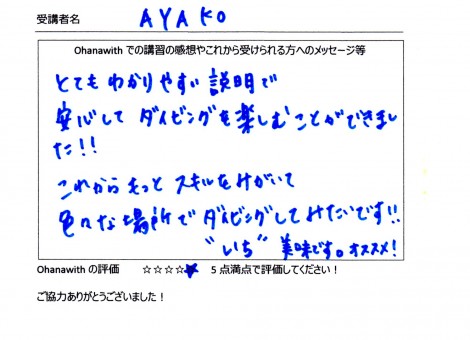 受講者名 AYAKO
Ohanawith での講習の感想やこれから受けられる方へのメッセージ等
とてもわかりやすい説明で
安心して ダイビングを楽しむことができまし
た!!
これからもっと スキルをみがいて
色々な場所でダイビングしてみたいです!!
"いち" 美味です。オススメ!
Ohanawith の評価 ☆☆☆☆★ 5 点満点で評価してください！
ご協力ありがとうございました！